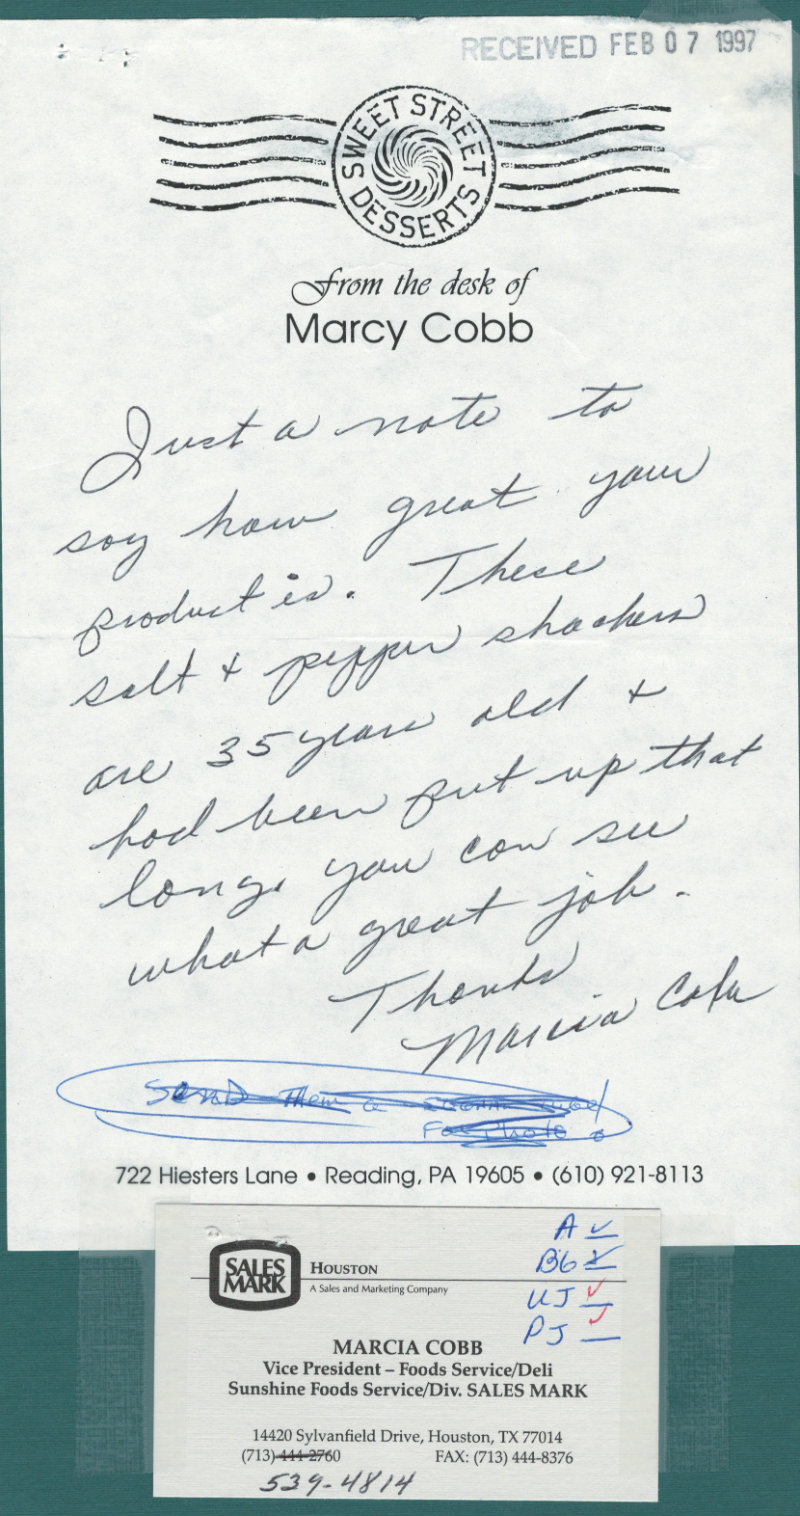 RECEIVED FEB 07 1997
SWEET STREET
DESSERTS
From the desk of
Marcy Cobb
Just a note to
say how great your
product is. These
salt + pepper shackers
are 35 years old +
had been put up that
long. you can see
what a great job.
Thanks
Marcia Cobb
Send them a
For Photo
722 Hiesters Lane • Reading, PA 19605 • (610) 921-8113
A
B6
UJ
PJ
SALES
MARK
HOUSTON
A Sales and Marketing Company
MARCIA COBB
Vice President – Foods Service/Deli
Sunshine Foods Service/Div. SALES MARK
14420 Sylvanfield Drive, Houston, TX 77014
(713) 444-2760 FAX: (713) 444-8376
539-4814